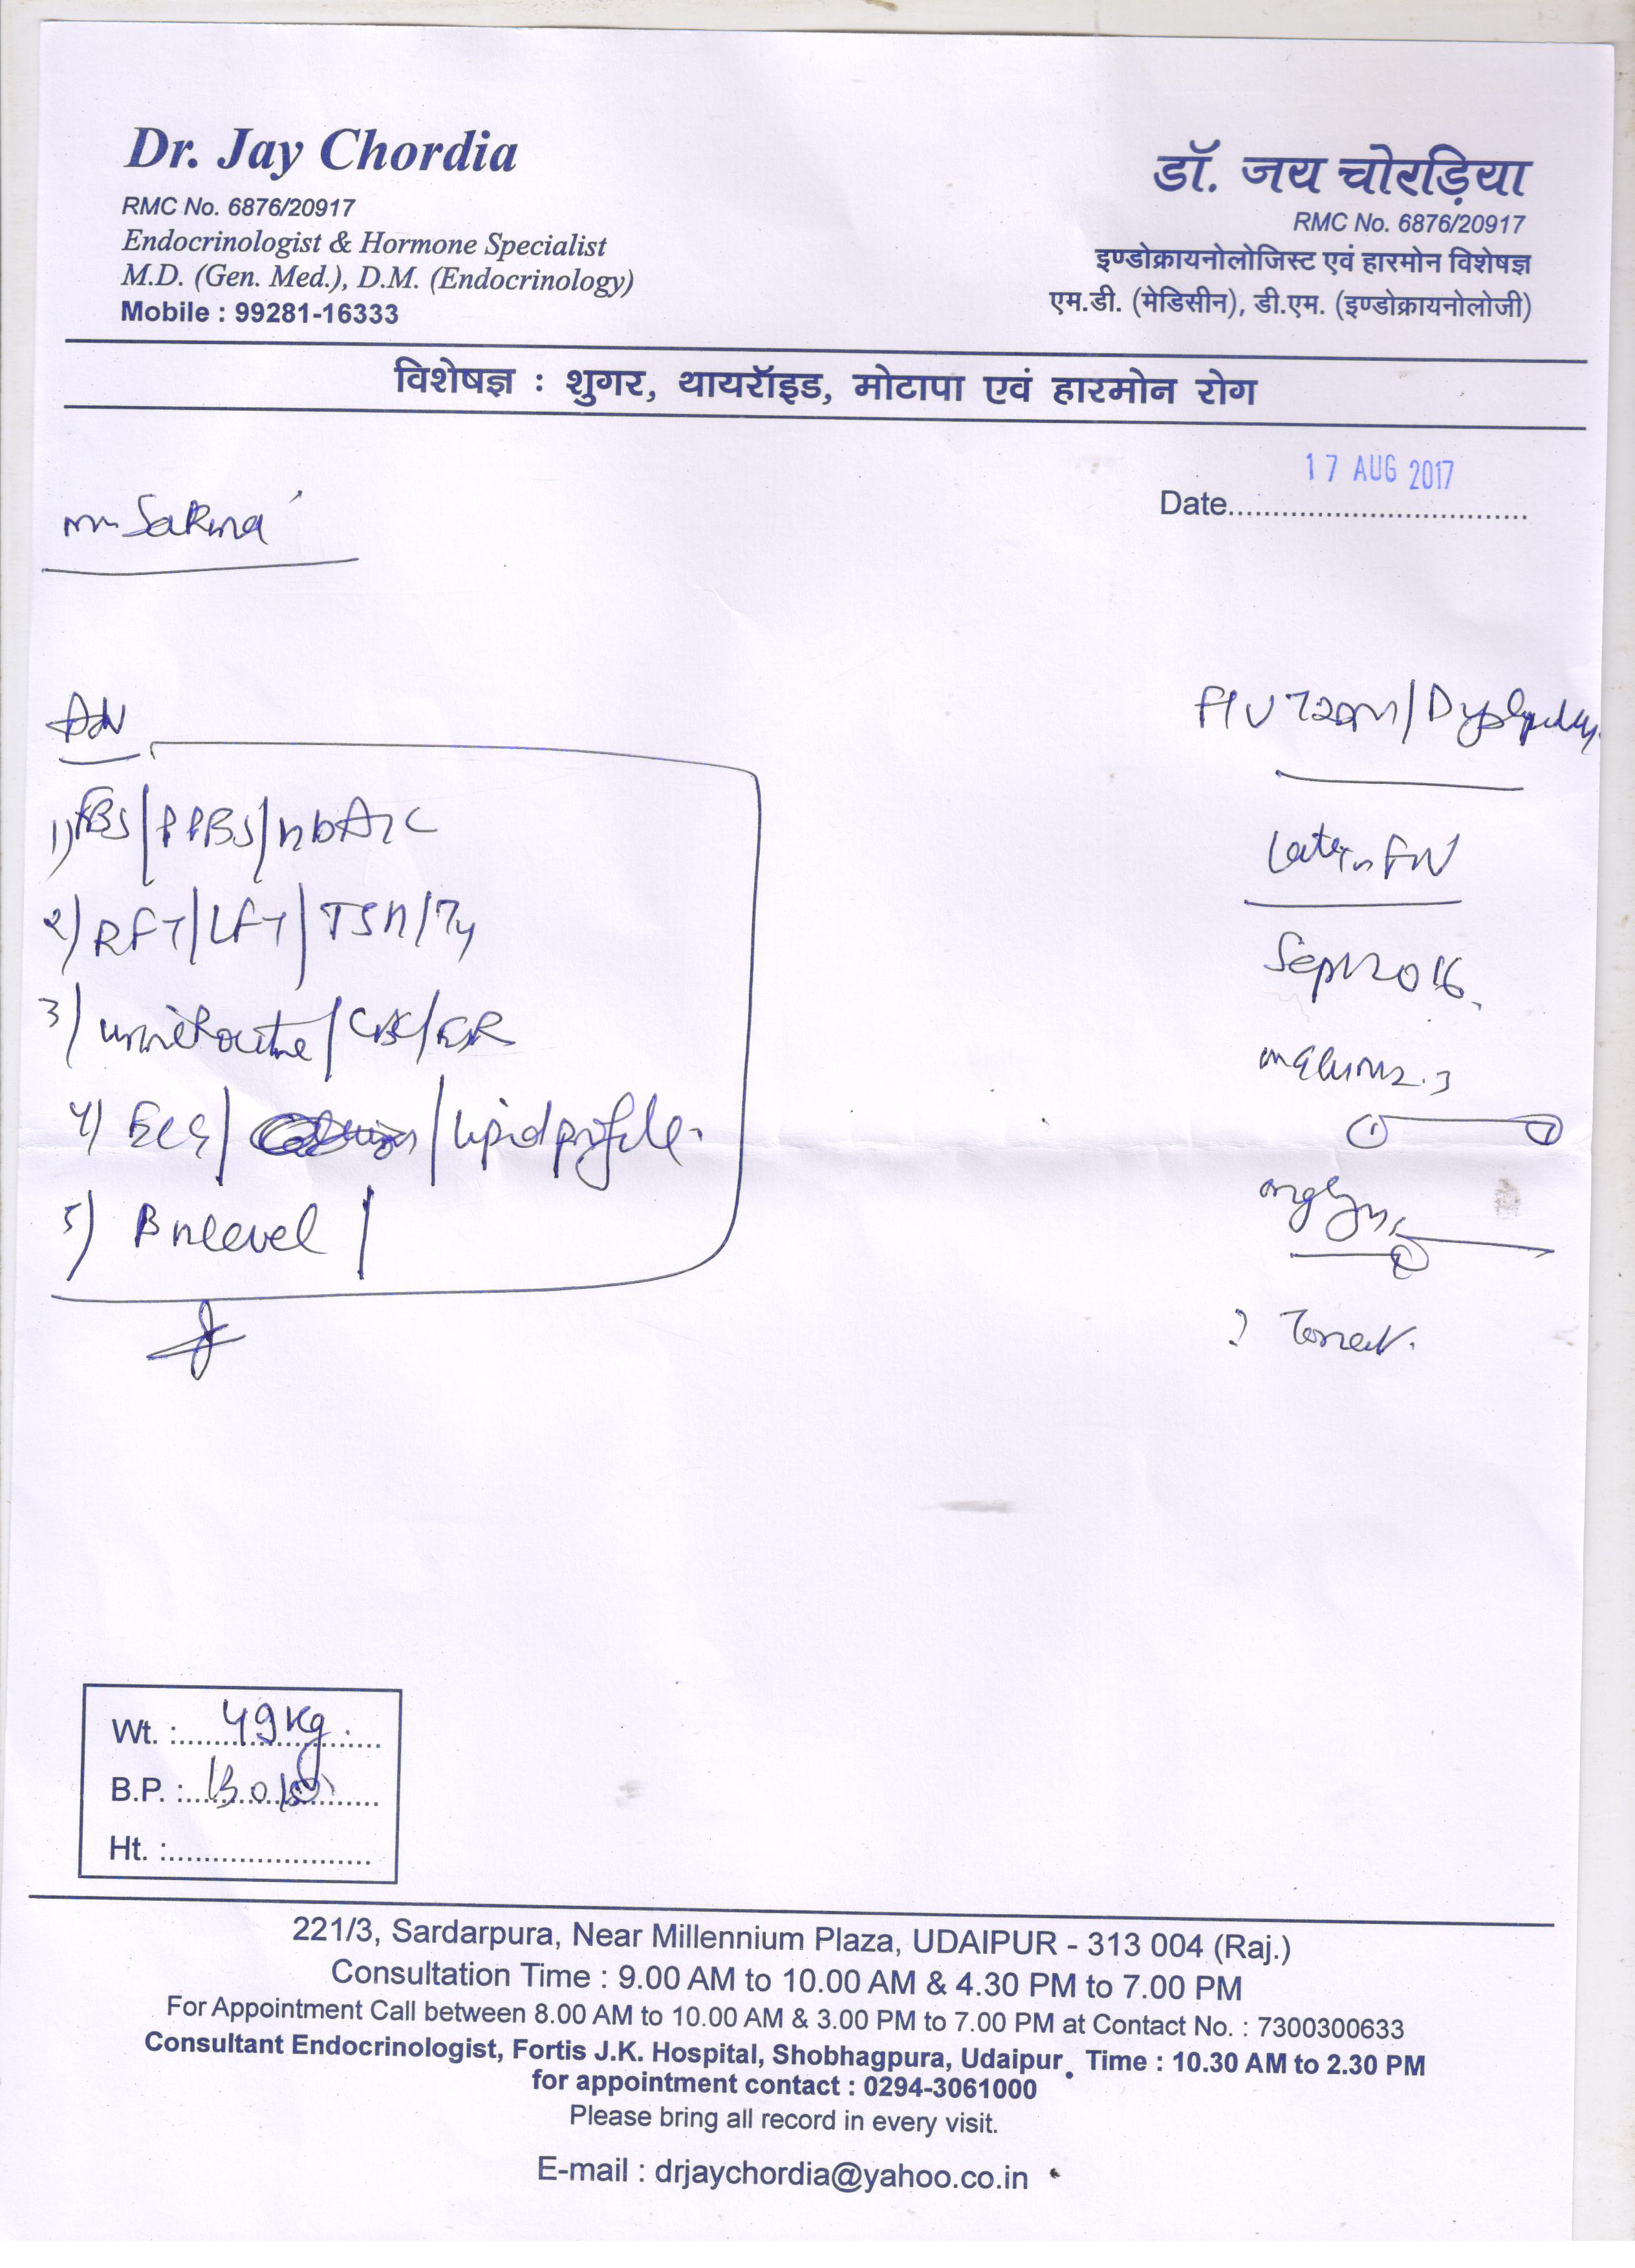 Dr. Jay Chordia
RMC No. 6876/20917
Endocrinologist & Hormone Specialist
M.D. (Gen. Med.), D.M. (Endocrinology)
Mobile : 99281-16333
डॉ. जय चोरड़िया
RMC No. 6876/20917
इण्डोक्रायनोलोजिस्ट एवं हारमोन विशेषज्ञ
एम.डी. (मेडिसीन), डी.एम. (इण्डोक्रायनोलोजी)
विशेषज्ञ : शुगर, थायरॉइड, मोटापा एवं हारमोन रोग
17 AUG 2017
Date
Sakina
Adv
1) FBS/PPBS/HbA1C
2) RFT/LFT/TSH/T4
3) urine Routine/CBC/ESR
4) ECG/ /lipid profile.
5) B12 level/
F/U T2DM/
Last in FU
Sept 2016.
Wt. : 49 Kg.
B.P. : 130/
Ht. :
221/3, Sardarpura, Near Millennium Plaza, UDAIPUR - 313 004 (Raj.)
Consultation Time : 9.00 AM to 10.00 AM & 4.30 PM to 7.00 PM
For Appointment Call between 8.00 AM to 10.00 AM & 3.00 PM to 7.00 PM at Contact No. : 7300300633
Consultant Endocrinologist, Fortis J.K. Hospital, Shobhagpura, Udaipur. Time : 10.30 AM to 2.30 PM
for appointment contact : 0294-3061000
Please bring all record in every visit.
E-mail : drjaychordia@yahoo.co.in